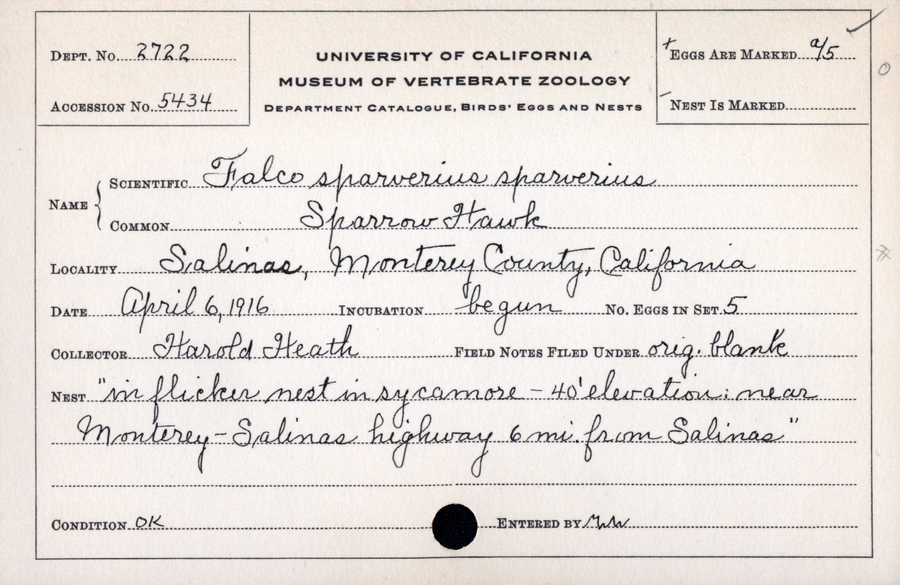 DEPT. No. 2722
ACCESSION No. 5434
UNIVERSITY OF CALIFORNIA
MUSEUM OF VERTEBRATE ZOOLOGY
DEPARTMENT CATALOGUE, BIRDS' EGGS AND NESTS
EGGS ARE MARKED a/5
NEST IS MARKED
NAME
SCIENTIFIC Falco sparverius sparverius
COMMON Sparrow Hawk
LOCALITY Salinas, Monterey County, California
DATE April 6, 1916 INCUBATION begun NO. EGGS IN SET 5
COLLECTOR Harold Heath FIELD NOTES FILED UNDER orig. blank
NEST "in flicker nest in sycamore - 40' elevation; near
Monterey-Salinas highway 6 mi. from Salinas"
CONDITION OK ENTERED BY